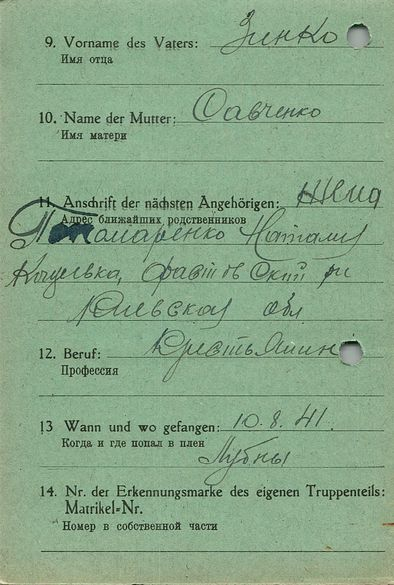 9. Vorname des Vaters: Зинко
Имя отца
10. Name der Mutter: Савченко
Имя матери
11. Anschrift der nächsten Angehörigen: жена
Адрес ближайших родственников
Пономаренко Наталия
Фастовский
Киевская обл
12. Beruf: Крестьянин
Профессия
13 Wann und wo gefangen: 10.8.41.
Когда и где попал в плен
Лубны
14. Nr. der Erkennungsmarke des eigenen Truppenteils:
Matrikel-Nr.
Номер в собственной части